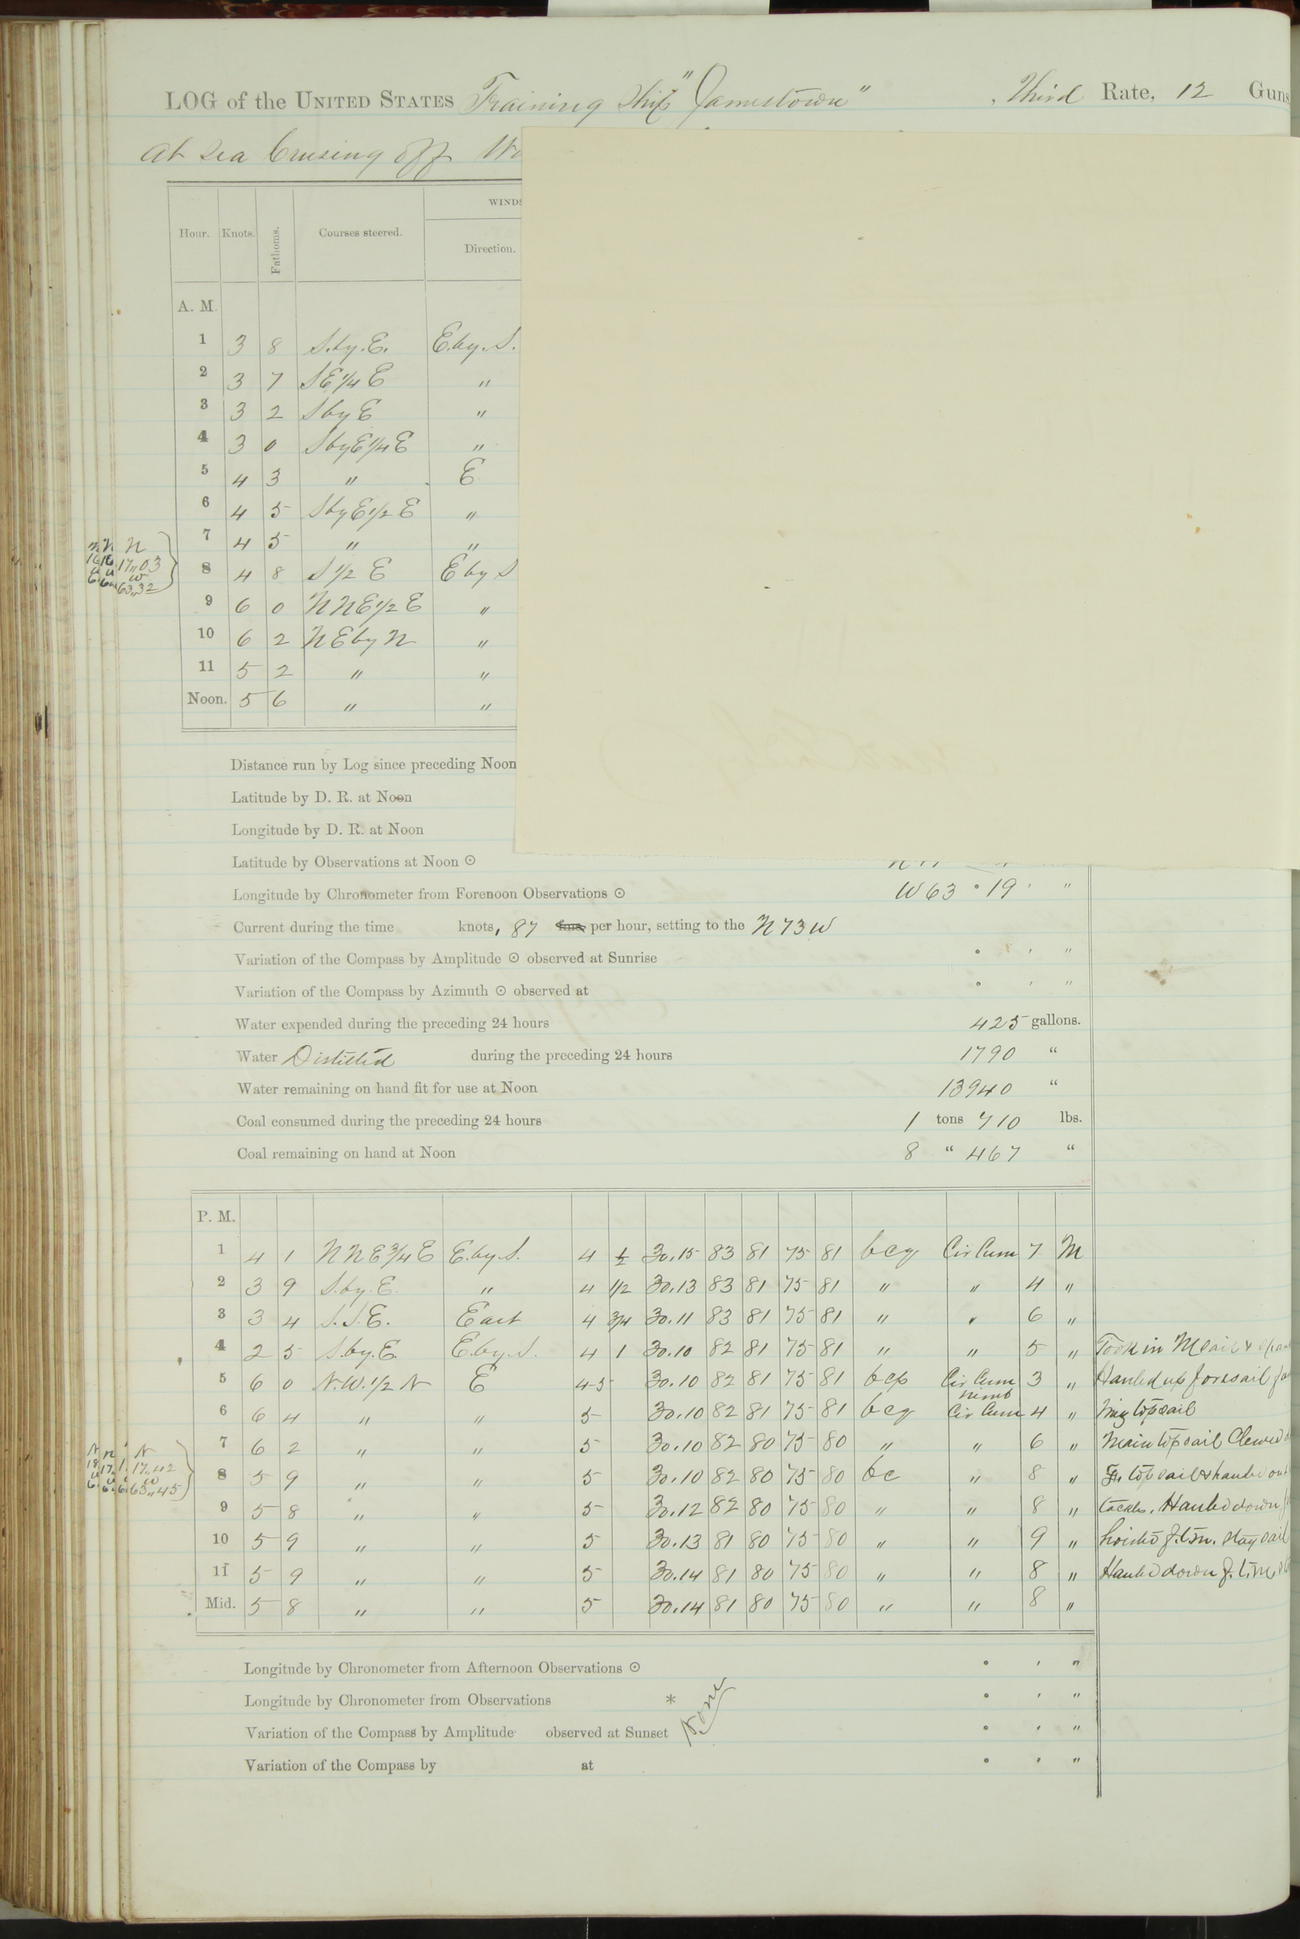 LOG of the UNITED STATES Training Ship "Jamestown", Third Rate, 12 Guns
At Sea Cruising off
WINDS
Hour. Knots. Fathoms. Courses steered. Direction.
A. M.
1 3 8 S.by.E. E.by.S.
2 3 7 SE1/4E "
3 3 2 SbyE "
4 3 0 SbyE1/4E "
5 4 3 " E
6 4 5 SbyE1/2E "
7 4 5 " "
8 4 8 S1/2E EbyS
9 6 0 NNE1/2E "
10 6 2 NEbyN "
11 5 2 " "
Noon. 5 6 " "
N
17,,03
W
63,,32
Distance run by Log since preceding Noon
Latitude by D. R. at Noon
Longitude by D. R. at Noon
Latitude by Observations at Noon ⊙
Longitude by Chronometer from Forenoon Observations ⊙ W 63 ° 19 ' "
Current during the time knots, .87 per hour, setting to the N73W
Variation of the Compass by Amplitude ⊙ observed at Sunrise ° ' "
Variation of the Compass by Azimuth ⊙ observed at ° ' "
Water expended during the preceding 24 hours 425 gallons.
Water Distilled during the preceding 24 hours 1790 "
Water remaining on hand fit for use at Noon 13940 "
Coal consumed during the preceding 24 hours 1 tons 710 lbs.
Coal remaining on hand at Noon 8 " 467 "
P. M.
1 4 1 NNE3/4E E.by.S. 4 1/2 30.15 83 81 75 81 bcq Cir Cum 7 M
2 3 9 S.by.E. " 4 1/2 30.13 83 81 75 81 " " 4 "
3 3 4 S.S.E. East 4 3/4 30.11 83 81 75 81 " " 6 "
4 2 5 S.by.E. E.by.S. 4 1 30.10 82 81 75 81 " " 5 " Took in
5 6 0 N.W.1/2N E 4-5 30.10 82 81 75 81 bcp Cir Cum nimb 3 " Hauled up foresail
6 6 4 " " 5 30.10 82 81 75 81 bcq Cir Cum 4 " Miz topsail
7 6 2 " " 5 30.10 82 80 75 80 " " 6 " Main topsail Clewed
8 5 9 " " 5 30.10 82 80 75 80 bc " 8 " topsail & hauled out
9 5 8 " " 5 30.12 82 80 75 80 " " 8 " Hauled down
10 5 9 " " 5 30.13 81 80 75 80 " " 9 " hoisted staysail
11 5 9 " " 5 30.14 81 80 75 80 " " 8 " Hauled down
Mid. 5 8 " " 5 30.14 81 80 75 80 " " 8 "
N
17,,42
W
63,,45
Longitude by Chronometer from Afternoon Observations ⊙ ° ' "
Longitude by Chronometer from Observations * ° ' "
None
Variation of the Compass by Amplitude observed at Sunset ° ' "
Variation of the Compass by at ° ' "